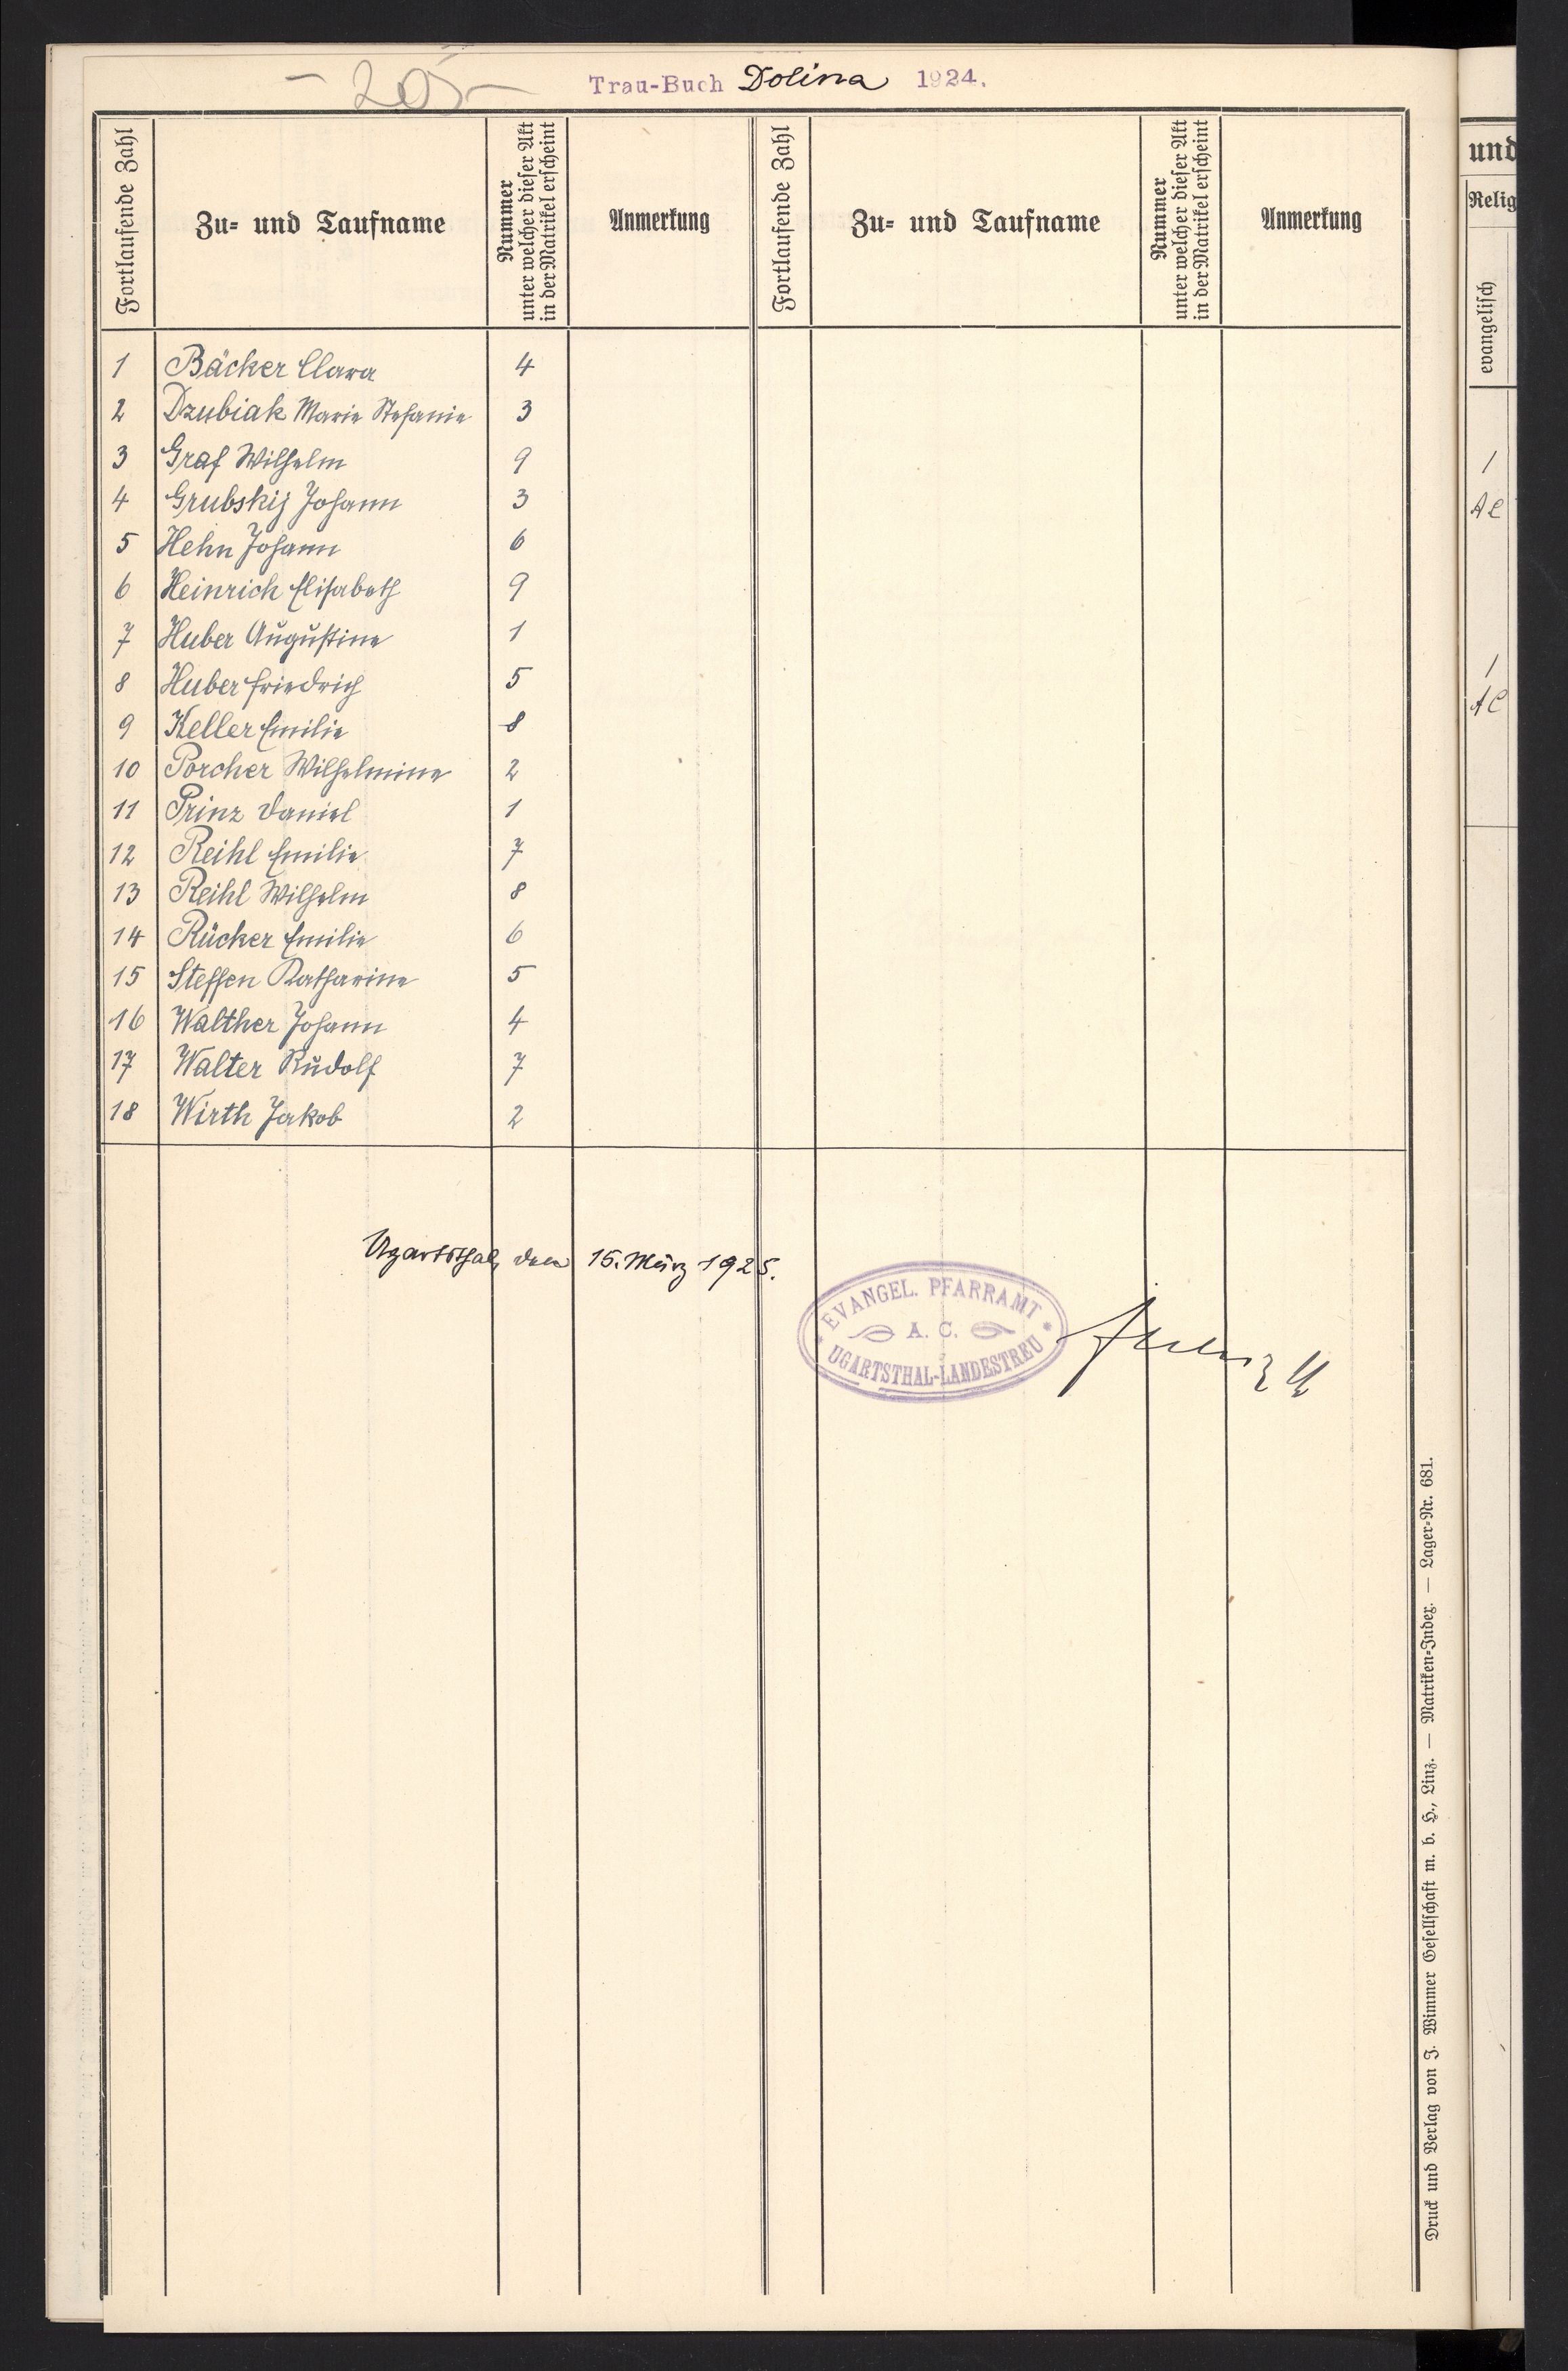 - 205 -
Trau-Buch Dolina 1924.
Fortlaufende Zahl
Zu- und Taufname
Nummer
unter welcher dieser Akt
in der Matrikel erscheint
Anmerkung
Fortlaufende Zahl
Zu- und Taufname
Nummer
unter welcher dieser Akt
in der Matrikel erscheint
Anmerkung
1 Bäcker Clara 4
2 Dzubiak Marie Stefanie 3
3 Graf Wilhelm 9
4 Grubskij Johann 3
5 Hehn Johann 6
6 Heinrich Elisabeth 9
7 Huber Augustine 1
8 Huber Friedrich 5
9 Keller Emilie 8
10 Porcher Wilhelmine 2
11 Prinz Daniel 1
12 Reihl Emilie 7
13 Reihl Wilhelm 8
14 Rücker Emilie 6
15 Steffen Katharine 5
16 Walther Johann 4
17 Walter Rudolf 7
18 Wirth Jakob 2
Ugartsthal, den 15. März 1925.
EVANGEL. PFARRAMT
A. C.
UGARTSTHAL-LANDESTREU
Druck und Verlag von J. Wimmer Gesellschaft m. b. H., Linz. — Matriken-Index. — Lager-Nr. 681.
und
Relig
evangelisch
1
AC
1
AC